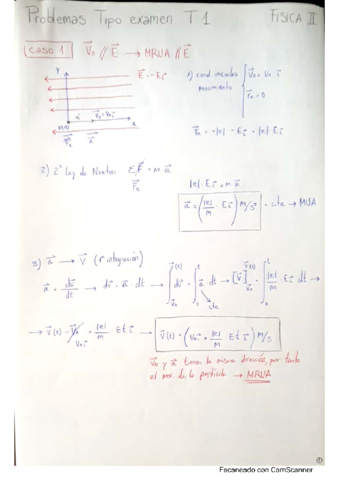 Problemas Tipo examen T1 FISICA II
caso 1 V⃗₀ // E⃗ → MRUA // E⃗
y E⃗ = -E i⃗
e⁻ v⃗₀ = v₀ i⃗
(0,0) x
F⃗e a⃗
1) cond. iniciales movimiento { V⃗₀ = V₀ i⃗
r⃗₀ = 0
F⃗e = -|e| · -E i⃗ = |e| · E i⃗
2) 2ª Ley de Newton Σ F⃗ = m · a⃗
F⃗e
|e| · E i⃗ = m · a⃗
a⃗ = (|e|/M · E i⃗) m/s² = cte → MUA
3) a⃗ → V⃗ (1ª integración)
a⃗ = dv⃗/dt → dv⃗ = a⃗ · dt → ∫ dv⃗ = ∫ a⃗ · dt → [V⃗] = ∫ |e|/M E i⃗ dt →
cte
→ V⃗(t) - V⃗₀ = |e|/M E t i⃗ → V⃗(t) = (V₀ i⃗ + |e|/M E t i⃗) m/s
V₀ i⃗
V⃗₀ y a⃗ tienen la misma dirección, por tanto
el mov. de la partícula → MRUA
Escaneado con CamScanner